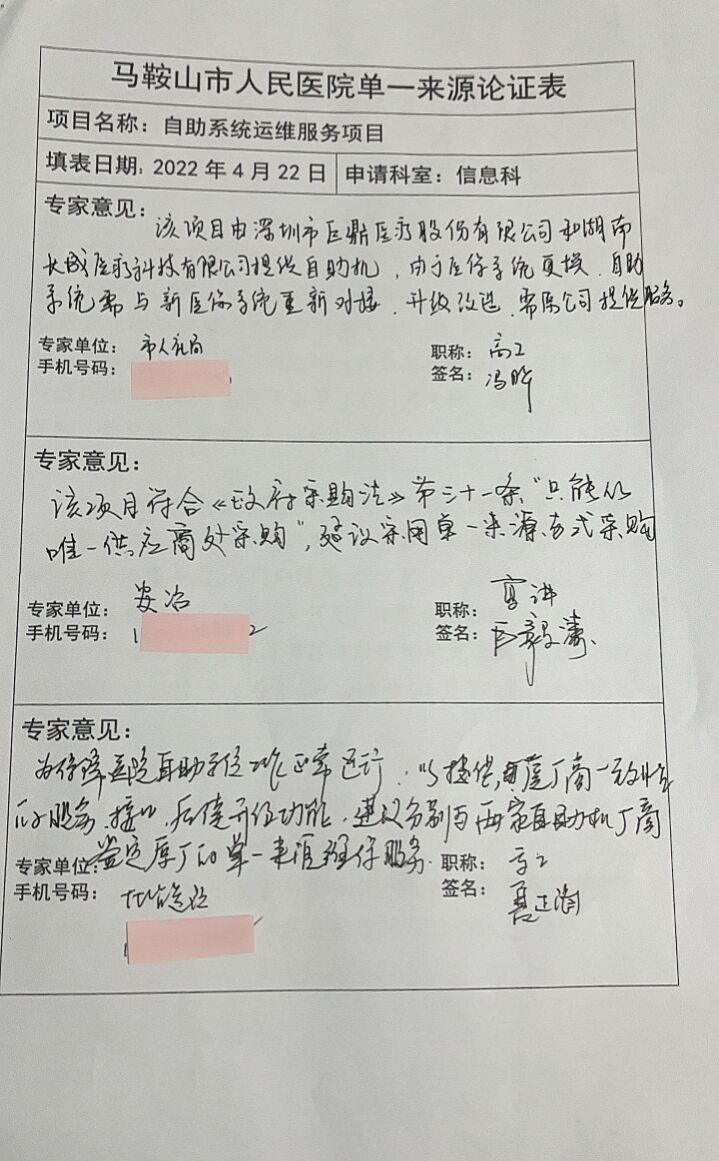 马鞍山市人民医院单一来源论证表
项目名称：自助系统运维服务项目
填表日期：2022 年 4 月 22 日 申请科室：信息科
专家意见：
该项目由深圳市巨鼎医疗股份有限公司和湖南
长城医疗科技有限公司提供自助机，由于医保系统更换，自助
系统需与新医保系统重新对接，升级改造，需原公司提供服务。
专家单位：市人社局 职称：高工
手机号码： 签名：冯晔
专家意见：
该项目符合《政府采购法》第三十一条“只能从
唯一供应商处采购”，建议采用单一来源方式采购
专家单位：安冶 职称：高讲
手机号码：1 2 签名：毅涛
专家意见：
为保障医院自助系统正常运行，以提供原厂商一致性
的服务，接口，后续升级功能，建议分别与两家自助机厂商
签定原厂的单一来源维保服务.
专家单位： 职称：高工
手机号码： 签名：